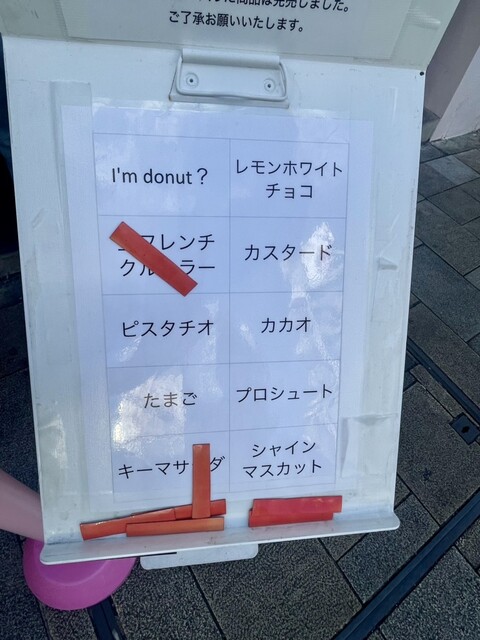 商品は完売しました。
ご了承お願いいたします。
I'm donut ?
レモンホワイト
チョコ
フレンチ
クル
ラー
カスタード
ピスタチオ
カカオ
たまご
プロシュート
キーマサ
ダ
シャイン
マスカット